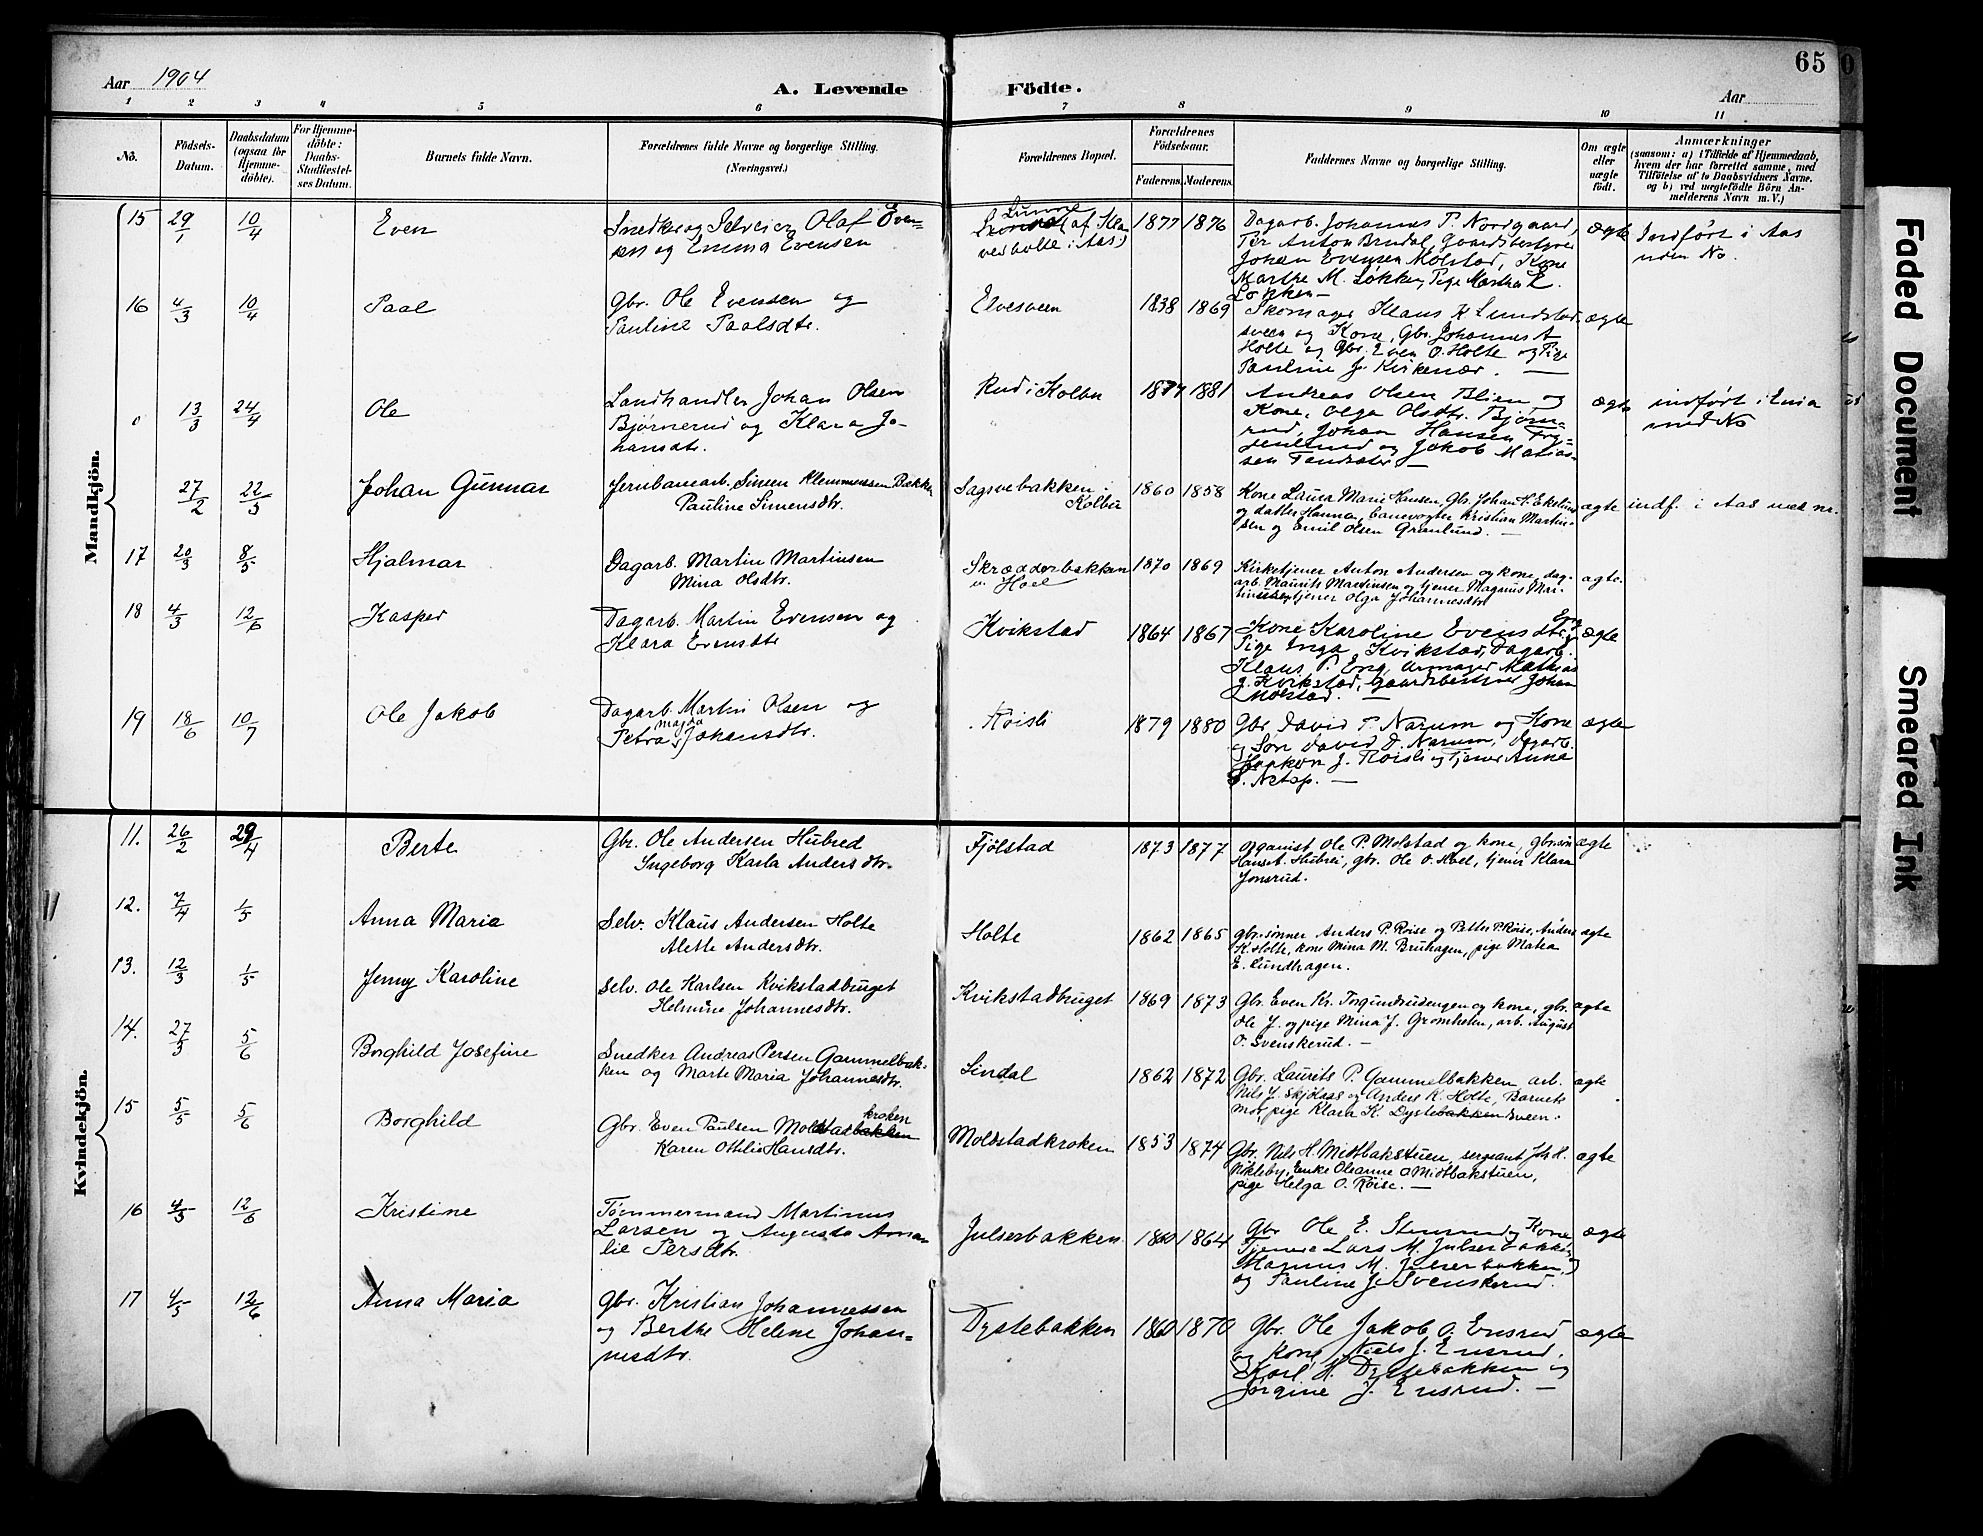 65
Aar 1904
A. Levende Födte.
Aar
1 2 3 4 5 6 7 8 9 10 11
No.
Födsels-Datum.
Daabsdatum (ogsaa for Hjemme-döbte).
For Hjemme-döbte: Daabs-Stadfæstel-ses Datum.
Barnets fulde Navn.
Forældrenes fulde Navne og borgerlige Stilling.
(Næringsvei.)
Forældrenes Bopæl.
Forældrenes Födselsaar.
Faderens. Moderens.
Faddernes Navne og borgerlige Stilling.
Om ægte eller uægte födt.
Anmærkninger
(saasom: a) i Tilfælde af Hjemmedaab,
hvem der har forrettet samme, med
Tilföielse af to Daabsvidners Navne.
og b) ved uægtefödte Börn An-
melderens Navn m.V.)
Mandkjön.
15 29/1 10/4 Even
Snedker og Selveier Olaf Even-
sen og Emma Evensen
Lunne (af Kla
verholte i Aas)
1877 1876
Dagarb. Johannes P. Nordgaard,
Per Anton Brudal, Gaardsbestyrer
Johan Evensen Molstad, Kone
Marthe M. Løkken, Pige Martha L.
Løkken —
ægte
Indført i Aas
uden No.
16 4/3 10/4 Paal
Gbr. Ole Evensen og
Pauline Paalsdtr.
Elvesveen
1838 1869
Skomager Klaus K Lundstad-
sveen og Kone, Gbr. Johannes A
Holte og Gbr. Even O. Holte og Pige
Pauline J. Kirkenær. —
ægte
0 13/3 24/4 Ole
Landhandler Johan Olsen
Bjørnerud og Klara Jo-
hansdtr.
Rud i Kolbu
1877 1881
Andreas Olsen Blien og
Kone, Olga Olsdtr. Bjørne-
rud, Johan Hansen
og Jakob Matias-
sen —
ægte
indført i
27/2 22/5 Johan Gunnar
Jernbanearb. Simen Klemmessen Bakken
Pauline Simensdtr.
Sagsvebakken i
Kolbu
1860 1858
Kone Laura Marie Hansen, Gbr. Johan H. Ekelund
og datter Hanna, banevogter Kristian Martin-
sen og Emil Olsen Grønlund. —
ægte
indf. i Aas uden nr.
17 20/3 8/5 Hjalmar
Dagarb. Martin Martinsen
Mina Olsdtr.
Skrædderbakken
u. Hoel
1870 1869
Kirketjener Anton Andersen og kone, dag-
arb. Maurits Martinsen og tjener Magnus Mar-
tinsen, tjener Olga Johannesdtr
ægte.
18 4/3 12/6 Kasper
Dagarb. Martin Evensen og
Klara Evensdtr
Kvikstad
1864 1867
Kone Karoline Evensdtr. Eng
Pige Inga Kvikstad, Dagarb.
Klaus P. Eng, Urmager Mathias
J. Kvikstad, Gaardsbestyrer Johan
Molstad. —
ægte
19 18/6 10/7 Ole Jakob
Dagarb. Martin Olsen og
Petra Magda Johansdtr.
Røisli
1879 1880
Gbr. David P. Narum og Kone
og Søn David D. Narum, Dagarb.
Haakon J. Røisli og Tjener Anne
—
ægte
Kvindekjön.
11. 26/2 29/4 Berte
Gbr. Ole Andersen Hubred
Ingeborg Karla Andersdtr.
Fjølstad
1873 1877
Organist Ole P. Molstad og kone, gbrsøn
Hans A. Hubrei, gbr. Ole O. Hoel, tjener Klara
Jonsrud.
ægte
12. 7/4 1/5 Anna Maria
Selv. Klaus Andersen Holte
Alette Andersdtr.
Holte
1862 1865
Gbr. sønner Anders P. Røise og Petter P. Røise, Anders
K. Holte, kone Mina M. Bruhagen, pige Matea
E. Lundhagen.
ægte
13. 12/3 1/5 Jenny Karoline
Selv. Ole Karlsen Kvikstadbruget
Helmine Johannesdtr.
Kvikstadbruget
1869 1873
Gbr. Even Kr. Torgundrudengen og kone, gbr.
Ole J. og pige Mina J. Gromholm, arb. August
O. Svenskerud. —
ægte
14. 27/3 5/6 Borghild Josefine
Snedker Andreas Persen Gammelbak-
ken og Marte Maria Johannesdtr.
Lindal
1862 1872
Gbr. Laurits P. Gammelbakken, arb.
Nils J. Skjølaas og Anders K. Holte, Barnets
mor, pige Klara K. Dystebakken sveen.
ægte
15 5/5 5/6 Borghild
Gbr. Even Paulsen Molstadbakken kroken
Karen Ottilie Hansdtr.
Molstadkroken
1853 1874
Gbr. Nils H. Midtbakstuen, sergeant Joh H.
Nøkleby, Enke Oleanne O Midtbakstuen,
pige Helga O. Røise. —
ægte
16 4/5 12/6 Kristine
Tømmermand Martinus
Larsen og Augusta Ama-
lie Persdtr.
Julserbakken
1860 1864
Gbr Ole E. Stensrud og Kone
Tjenere Lars M. Julserbakken,
Magnus M. Julserbakken,
og Pauline J. Svenskerud.
ægte
17 4/5 12/6 Anna Maria
Gbr. Kristian Johannessen
og Berthe Helene Johan-
nesdtr.
Dystebakken
1860 1870
Gbr. Ole Jakob O. Ensrud
og Kone, Niels J. Ensrud,
Karl H. Dystebakken og
Jørgine J. Ensrud. —
ægte
Faded Document
Smeared Ink